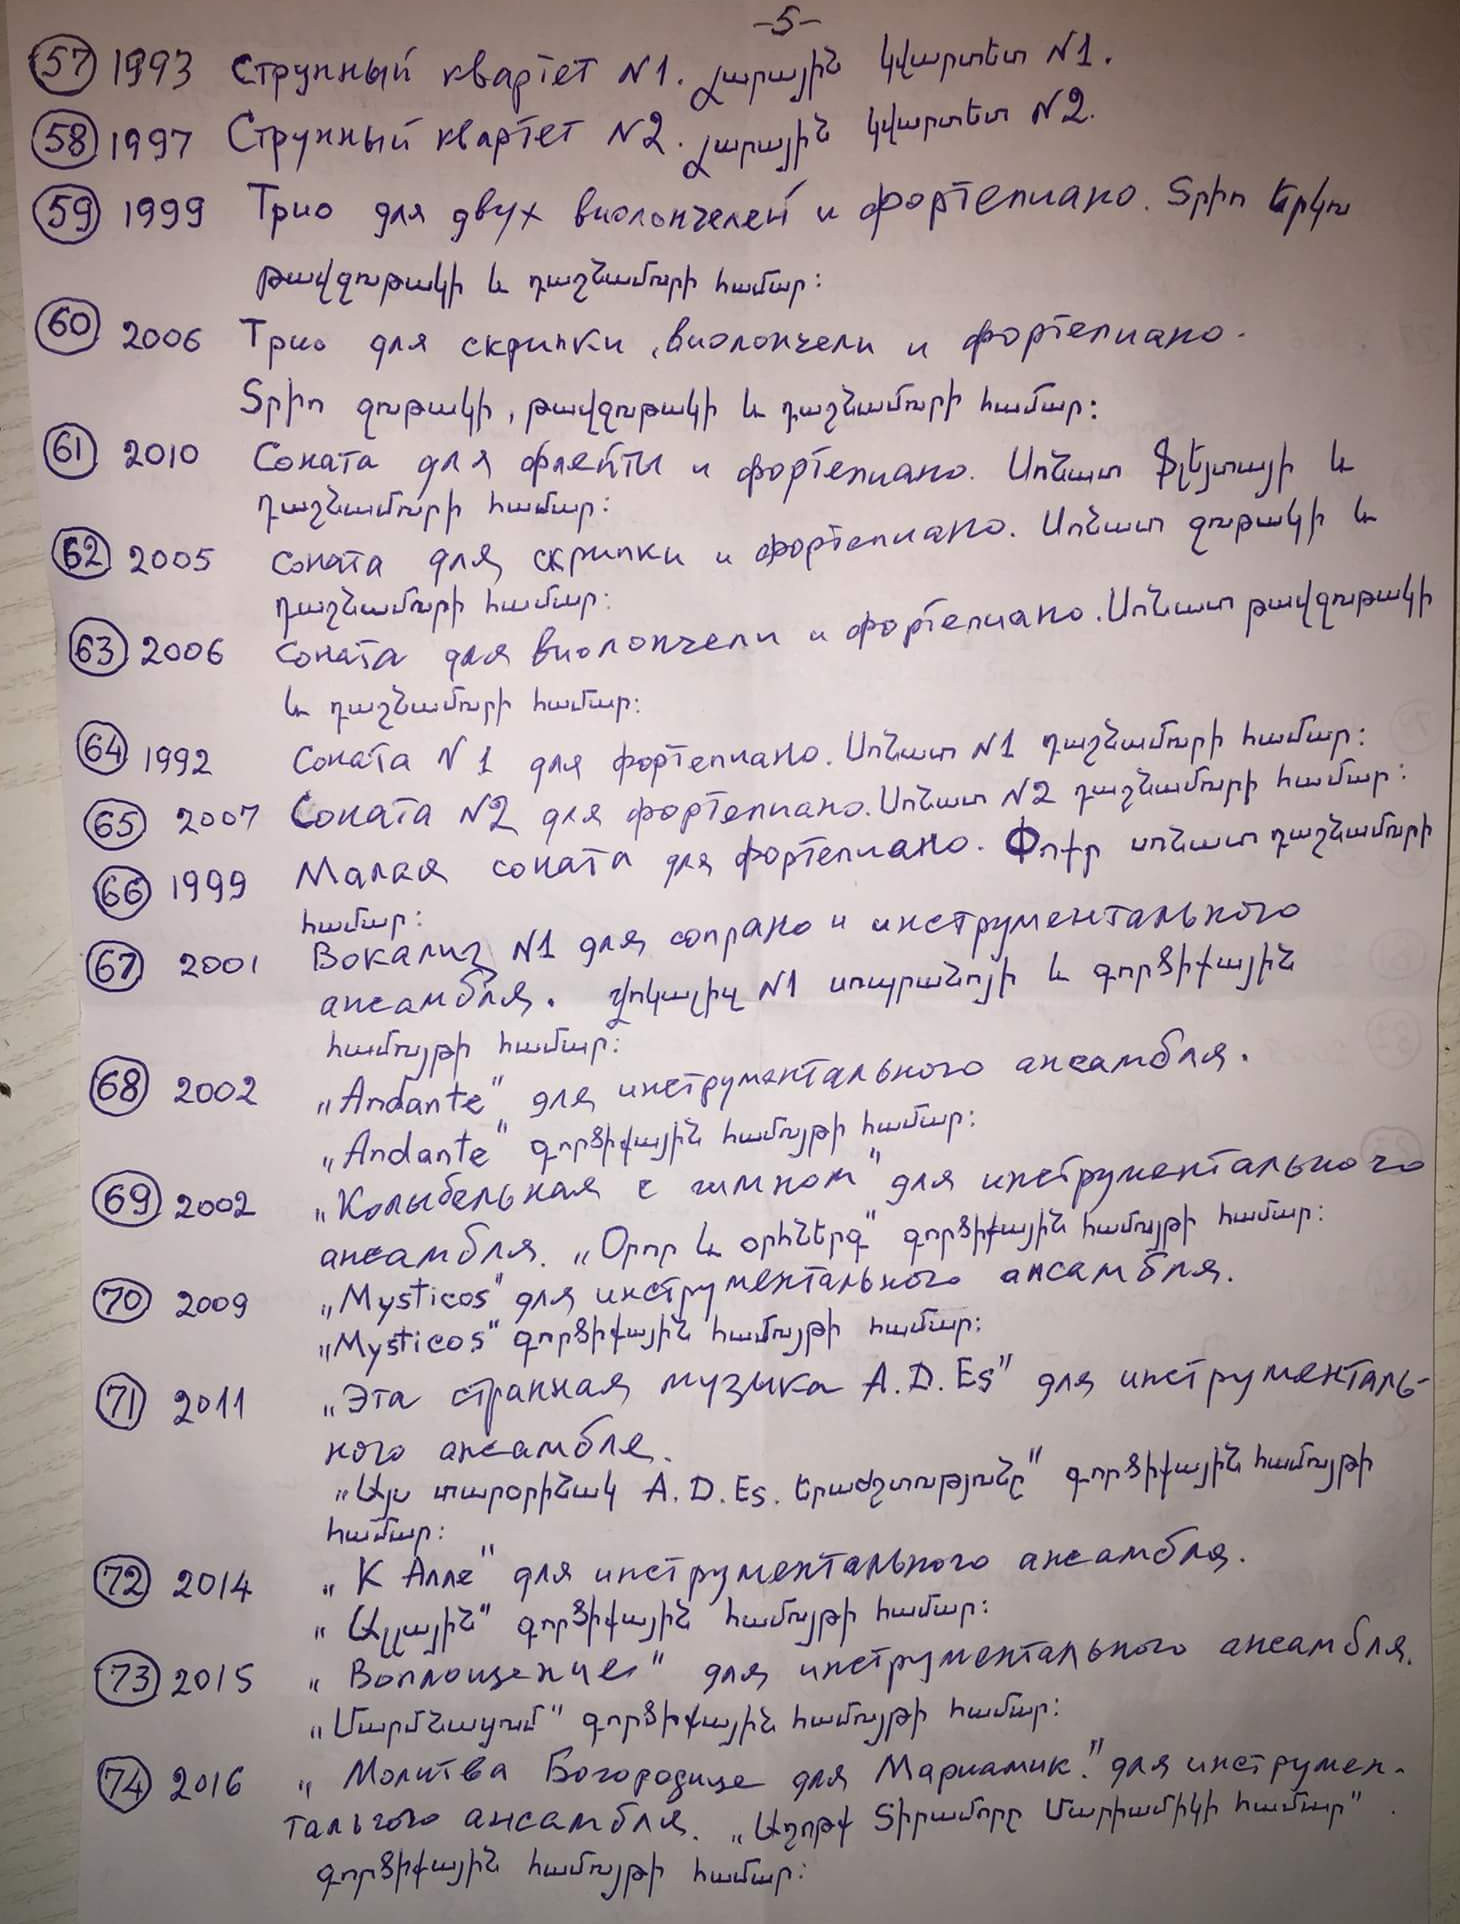 -5-
57 1993 Струнный квартет N1. Լարային կվարտետ N1.
58 1997 Струнный квартет N2. Լարային կվարտետ N2.
59 1999 Трио для двух виолончелей и фортепиано. Տրիո երկու
թավջութակի և դաշնամուրի համար:
60 2006 Трио для скрипки, виолончели и фортепиано.
Տրիո ջութակի, թավջութակի և դաշնամուրի համար:
61 2010 Соната для флейты и фортепиано. Սոնատ ֆլեյտայի և
դաշնամուրի համար:
62 2005 Соната для скрипки и фортепиано. Սոնատ ջութակի և
դաշնամուրի համար:
63 2006 Соната для виолончели и фортепиано. Սոնատ թավջութակի
և դաշնամուրի համար:
64 1992 Соната N1 для фортепиано. Սոնատ N1 դաշնամուրի համար:
65 2007 Соната N2 для фортепиано. Սոնատ N2 դաշնամուրի համար:
66 1999 Малая соната для фортепиано. Փոքր սոնատ դաշնամուրի
համար:
67 2001 Вокализ N1 для сопрано и инструментального
ансамбля. Վոկալիզ N1 սոպրանոյի և գործիքային
համույթի համար:
68 2002 „Andante" для инструментального ансамбля.
„Andante" գործիքային համույթի համար:
69 2002 „Колыбельная с гимном" для инструментального
ансамбля. „Օրոր և օրհներգ" գործիքային համույթի համար:
70 2009 „Mysticos" для инструментального ансамбля.
„Mysticos" գործիքային համույթի համար:
71 2011 „Эта странная музыка A.D.Es" для инструменталь-
ного ансамбля.
„Այս տարօրինակ A.D.Es. երաժշտությունը" գործիքային համույթի
համար:
72 2014 „К Алле" для инструментального ансамбля.
„Ալլային" գործիքային համույթի համար:
73 2015 „Воплощение" для инструментального ансамбля.
„Մարմնացում" գործիքային համույթի համար:
74 2016 „Молитва Богородице для Мариамик." для инструмен-
тального ансамбля. „Աղոթք Տիրամորը Մարիամիկի համար"
գործիքային համույթի համար: